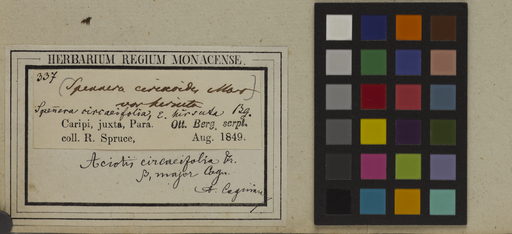 HERBARIUM REGIUM MONACENSE.
337
(Spennera circaeoides Mar)
var hirsuta
Spenera circaeifolia, E. hirsuta Bg.
Caripi, juxta, Para. Ott. Berg, script.
coll. R. Spruce, Aug. 1849.
Aciotis circaeifolia Tr.
β, major Cogn.
A. Cogniaux